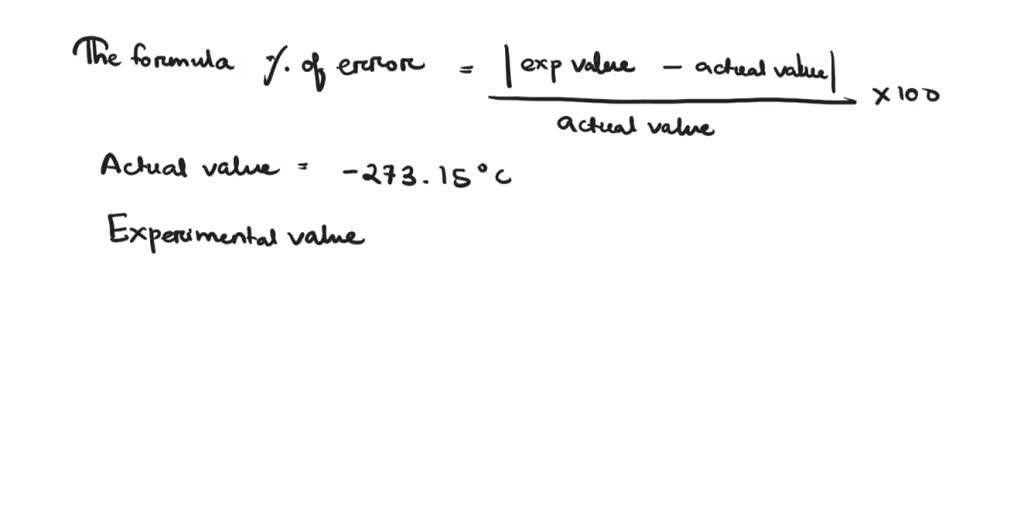 The formula % of error = |exp value - actual value| / actual value × 100
Actual value = -273.15°C
Experimental value